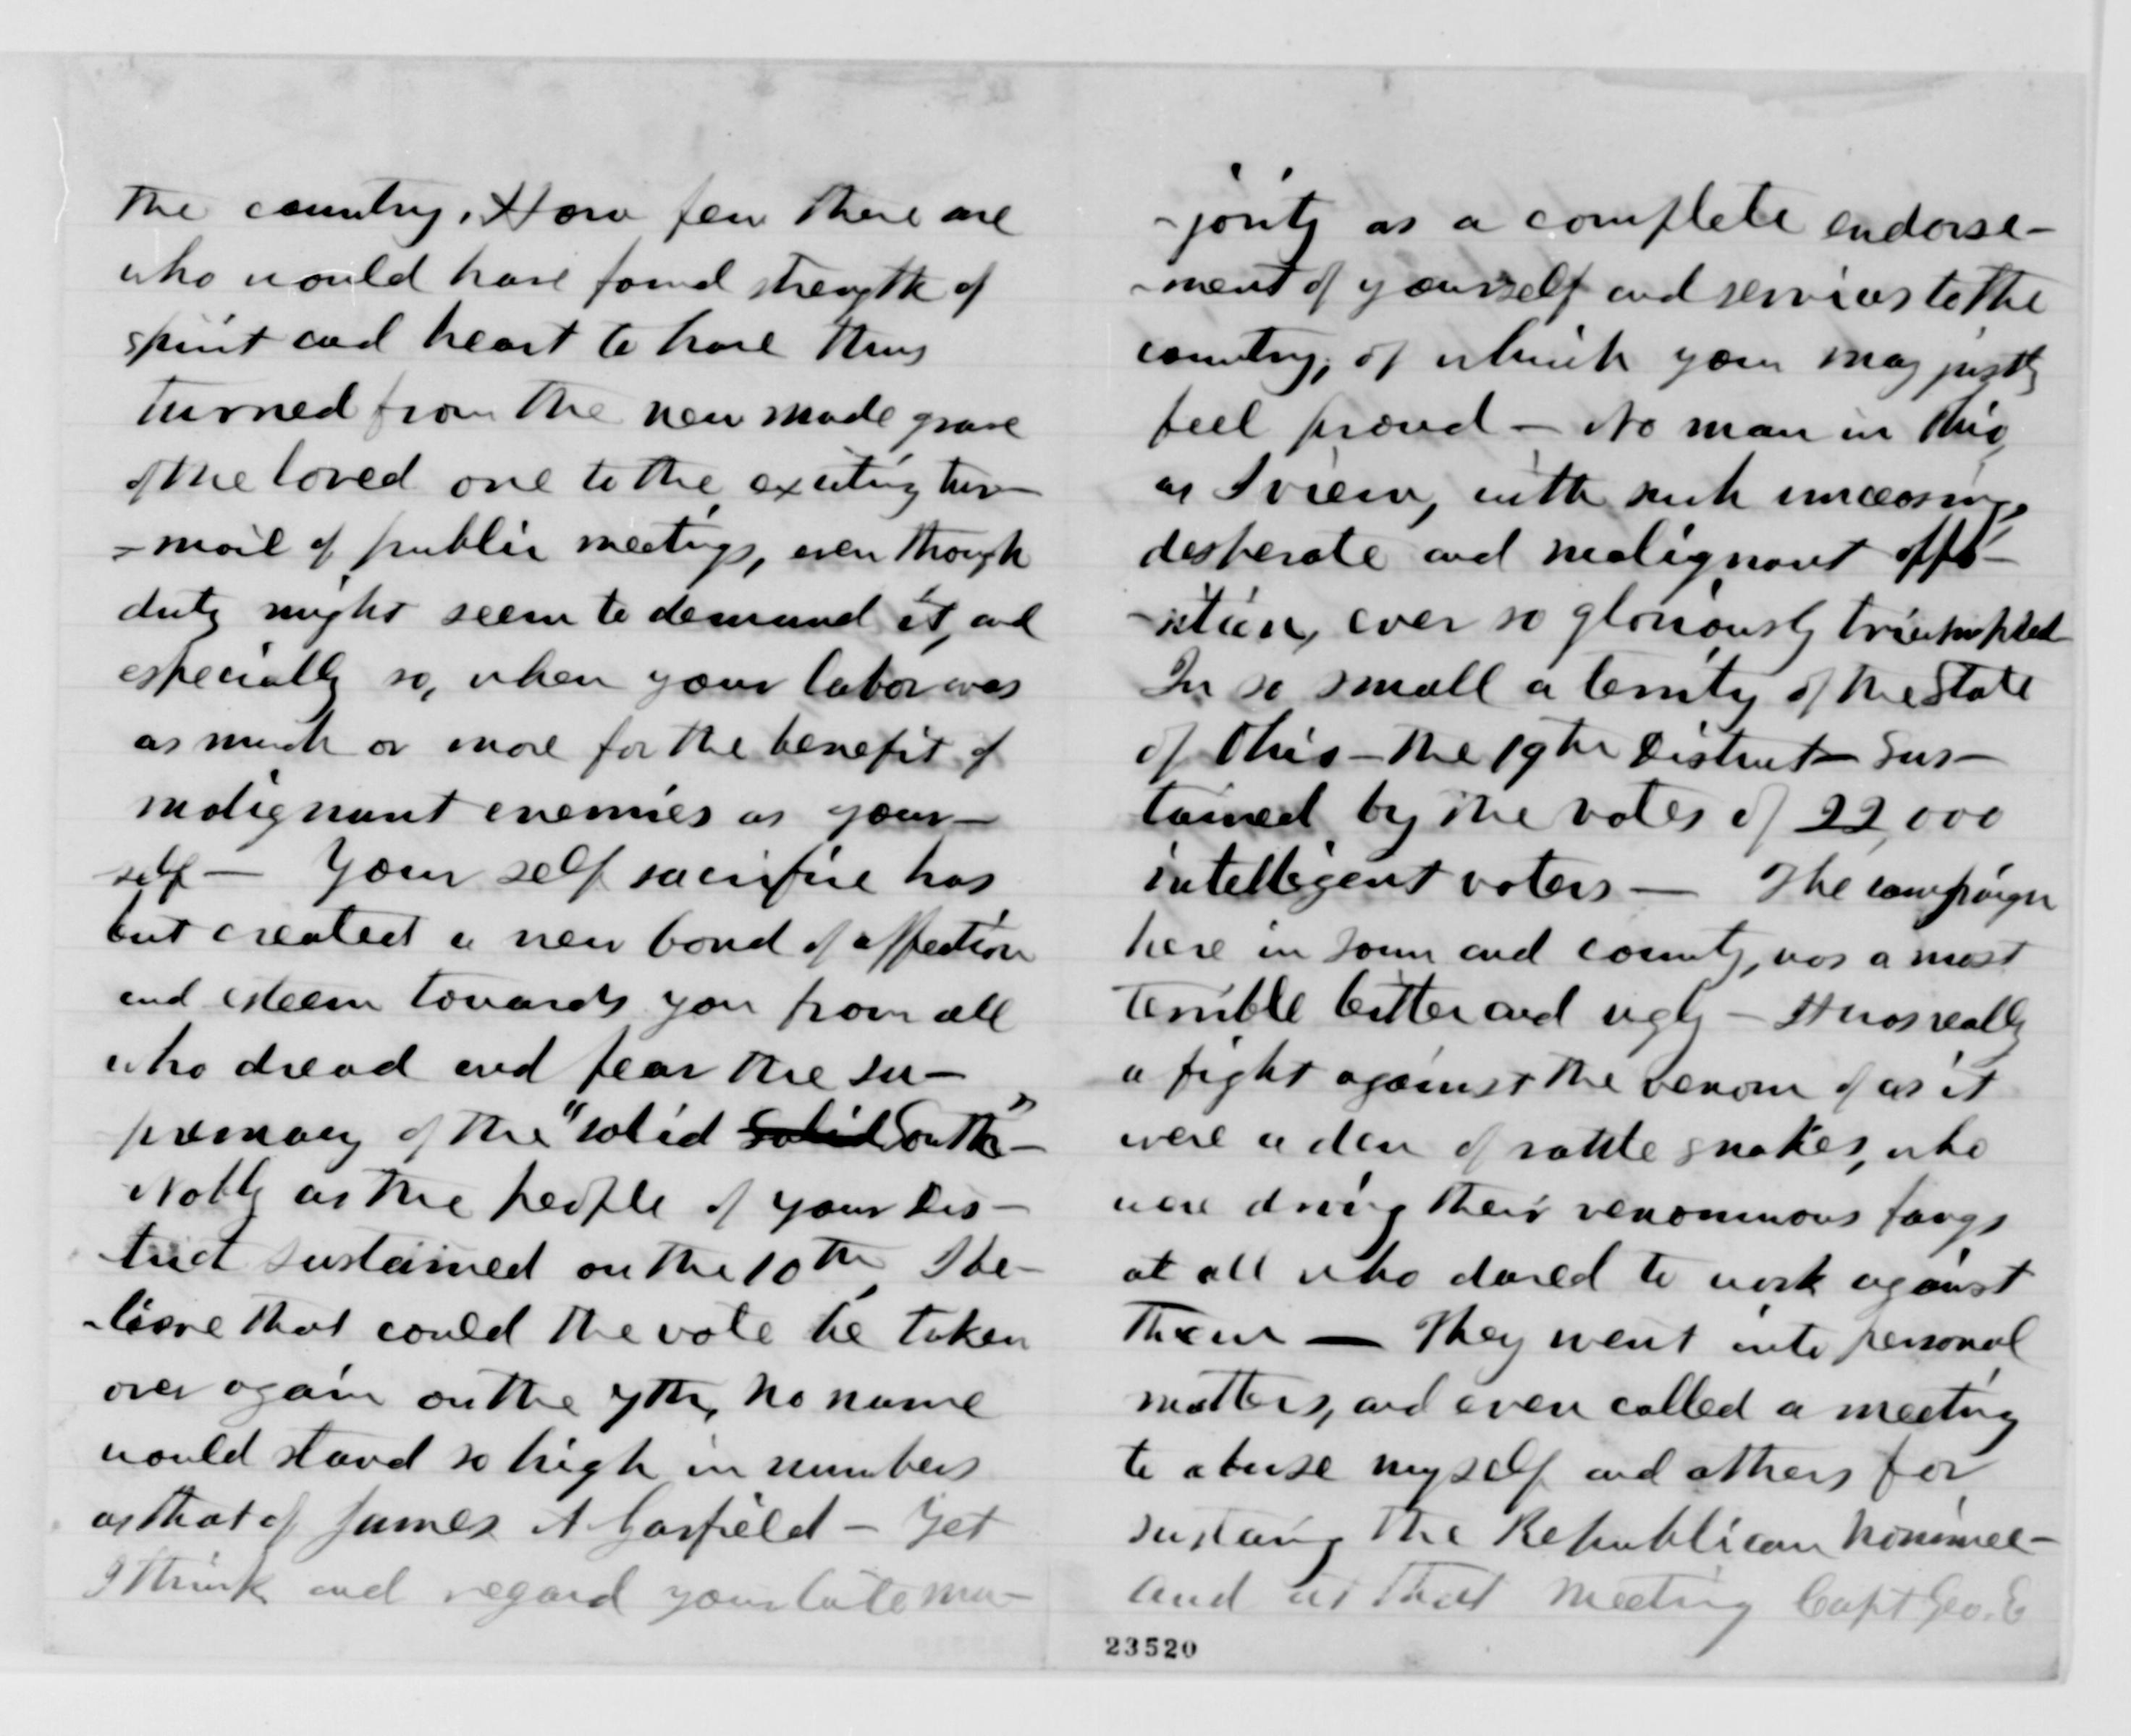 the country. How few there are
who would have found strength of
spirit and heart to have thus
turned from the new made grave
of the loved one to the exciting tur-
-moil of public meetings, even though
duty might seem to demand it, and
especially so, when your labor was
as much or more for the benefit of
malignant enemies as your-
self — Your self sacrifice has
but created a new bond of affection
and esteem towards you from all
who dread and fear the su-
premacy of the "solid solid South" —
Nobly as the people of your Dis-
trict sustained on the 10th, I be-
-lieve that could the vote be taken
over again on the 7th, no name
would stand so high in numbers
as that of James A Garfield — Yet
I think and regard your late ma-
-jority as a complete endorse-
-ment of yourself and services to the
country, of which you may justly
feel proud — No man in this,
as I view, with such unceasing,
desperate and malignant oppo-
-sition, ever so gloriously triumphed
In so small a territy of the State
of Ohio — the 19th District — sus-
tained by the votes of 22,000
intelligent voters — The campaign
here in town and county, was a most
terrible bitter and ugly — It was really
a fight against the venom of as it
were a den of rattle snakes, who
were driving their venominous fangs
at all who dared to work against
them — They went into personal
matters, and even called a meeting
to abuse myself and others for
sustaing the Republican nominee —
And at that meeting Capt Geo. E
23520